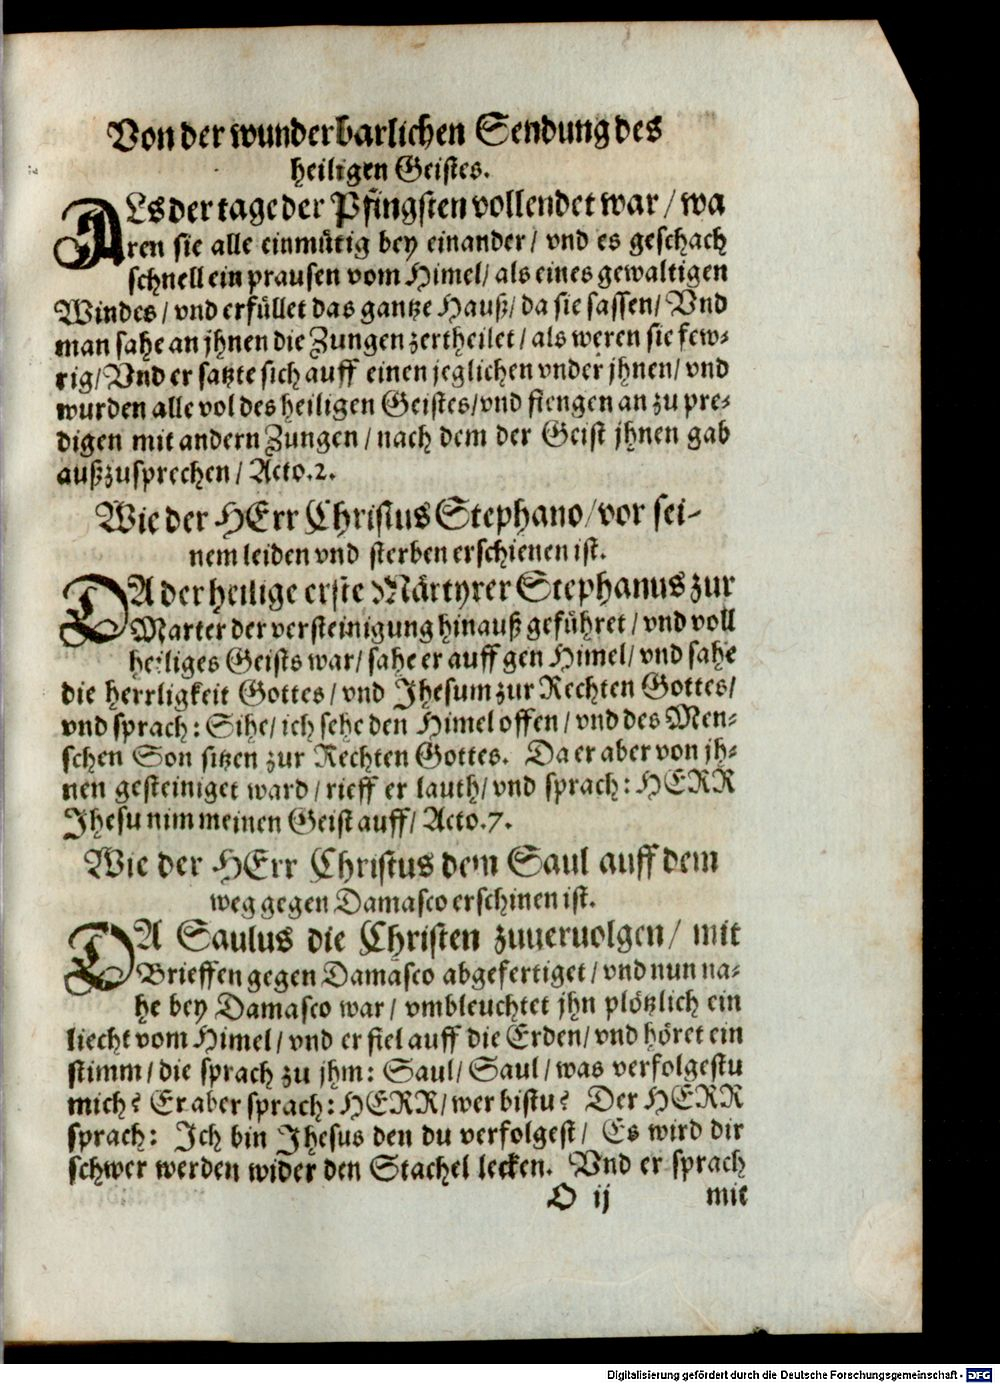 Von der wunderbarlichen Sendung des
heiligen Geistes.
ALs der tage der Pfingsten vollendet war / wa
ren sie alle einmütig bey einander / vnd es geschach
schnell ein prausen vom Himel / als eines gewaltigen
Windes / vnd erfüllet das gantze Hauß / da sie sassen / Vnd
man sahe an jhnen die Zungen zertheilet / als weren sie few-
rig / Vnd er satzte sich auff einen jeglichen vnder jhnen / vnd
wurden alle vol des heiligen Geistes / vnd fiengen an zu pre-
digen mit andern Zungen / nach dem der Geist jhnen gab
außzusprechen / Acto.2.
Wie der HErr Christus Stephano / vor sei-
nem leiden vnd sterben erschienen ist.
DA der heilige erste Märtyrer Stephanus zur
Marter der versteinigung hinauß geführet / vnd voll
heiliges Geists war / sahe er auff gen Himel / vnd sahe
die herrligkeit Gottes / vnd Jhesum zur Rechten Gottes /
vnd sprach : Sihe / ich sehe den Himel offen / vnd des Men-
schen Son sitzen zur Rechten Gottes. Da er aber von jh-
nen gesteiniget ward / rieff er lauth / vnd sprach : HERR
Jhesu nim meinen Geist auff / Acto.7.
Wie der HErr Christus dem Saul auff dem
weg gegen Damasco erschinen ist.
DA Saulus die Christen zuueruolgen / mit
Brieffen gegen Damasco abgefertiget / vnd nun na-
he bey Damasco war / vmbleuchtet jhn plötzlich ein
liecht vom Himel / vnd er fiel auff die Erden / vnd höret ein
stimm / die sprach zu jhm : Saul / Saul / was verfolgestu
mich ? Er aber sprach : HERR / wer bistu ? Der HERR
sprach : Ich bin Jhesus den du verfolgest / Es wird dir
schwer werden wider den Stachel lecken. Vnd er sprach
O ij mit
Digitalisierung gefördert durch die Deutsche Forschungsgemeinschaft - DFG